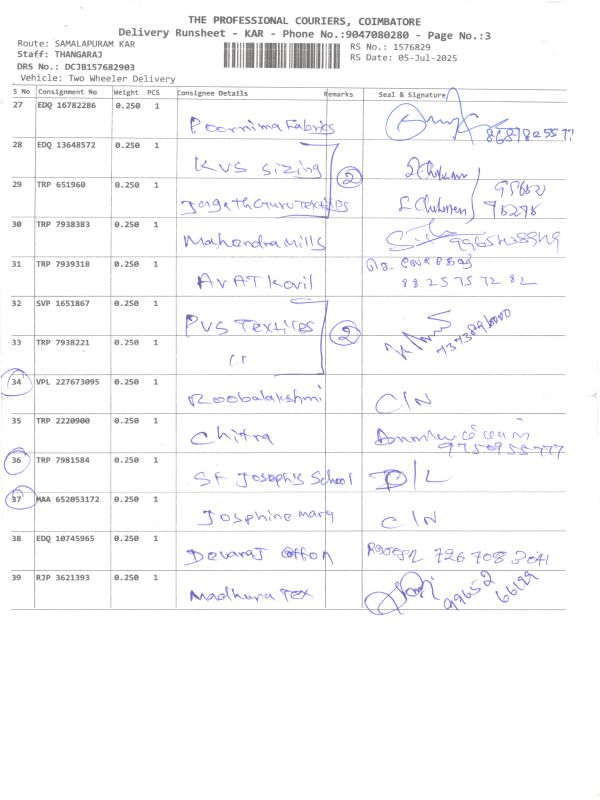 THE PROFESSIONAL COURIERS, COIMBATORE
Delivery Runsheet - KAR - Phone No.:9047080280 - Page No.:3
Route: SAMALAPURAM KAR
RS No.: 1576829
Staff: THANGARAJ
RS Date: 05-Jul-2025
DRS No.: DCJB157682903
Vehicle: Two Wheeler Delivery
S No Consignment No Weight PCS Consignee Details Remarks Seal & Signature
27 EDQ 16782286 0.250 1 Poornima Fabrics
28 EDQ 13648572 0.250 1 KVS Sizing
29 TRP 651960 0.250 1 JagathGuru Textiles 2
30 TRP 7938383 0.250 1 Mahendra Mills
31 TRP 7939318 0.250 1 AVAT Kovil 88257 57282
32 SVP 1651867 0.250 1 PVS Textiles
33 TRP 7938221 0.250 1 " 2
34 VPL 227673095 0.250 1 Roobalakshmi C/N
35 TRP 2220900 0.250 1 Chitra 9750955777
36 TRP 7981584 0.250 1 St Joseph's School D/L
37 MAA 652053172 0.250 1 Josphine mary C/N
38 EDQ 10745965 0.250 1 Devaraj Cotton
39 RJP 3621393 0.250 1 Madhura Tex